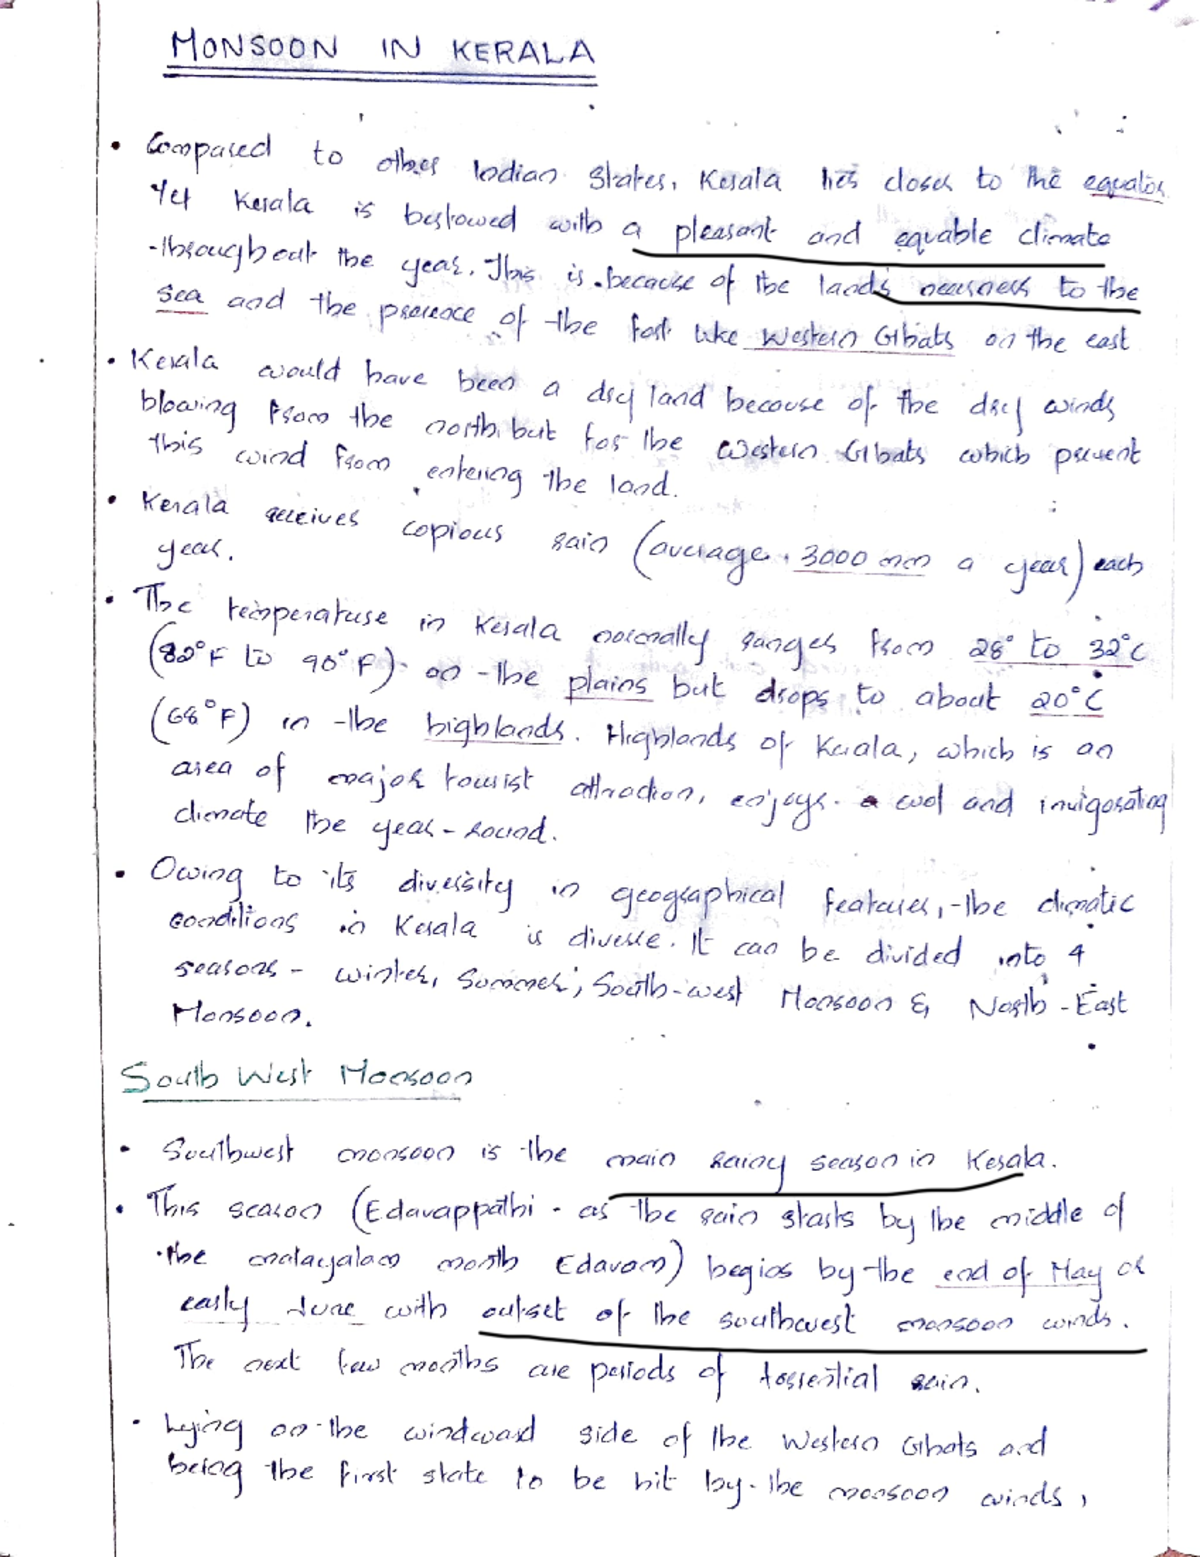 MONSOON IN KERALA
• Compared to other Indian States, Kerala lies closer to the equator.
Yet Kerala is bestowed with a pleasant and equable climate
throughout the year. This is because of the land's nearness to the
sea and the presence of the fort like Western Ghats on the east
• Kerala would have been a dry land because of the dry winds
blowing from the north, but for the Western Ghats which prevent
this wind from entering the land.
• Kerala receives copious rain (average 3000 mm a year) each
year.
• The temperature in Kerala normally ranges from 28° to 32°C
(82°F to 90°F) on the plains but drops to about 20°C
(68°F) in the highlands. Highlands of Kerala, which is an
area of major tourist attraction, enjoys a cool and invigorating
climate the year-round.
• Owing to its diversity in geographical features, the climatic
conditions in Kerala is diverse. It can be divided into 4
seasons - winter, Summer, South-west Monsoon & North-East
Monsoon.
South West Monsoon
• Southwest monsoon is the main rainy season in Kerala.
• This season (Edavappathi - as the rain starts by the middle of
the malayalam month Edavam) begins by the end of May or
early June with outset of the southwest monsoon winds.
The next few months are periods of torrential rain.
• Lying on the windward side of the Western Ghats and
being the first state to be hit by the monsoon winds,